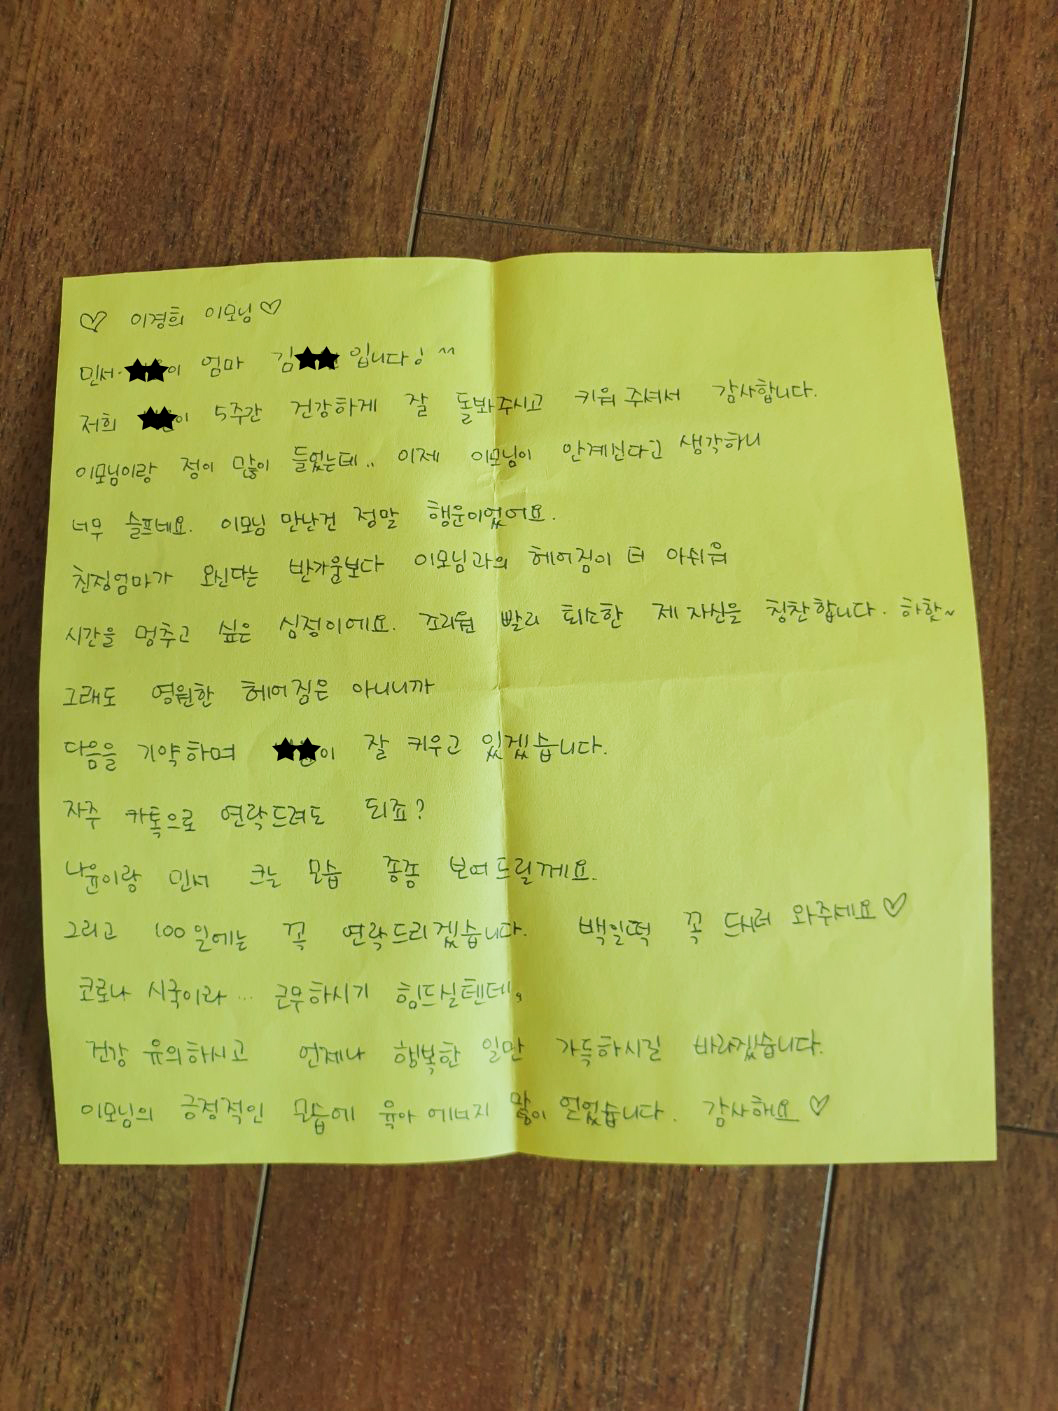 ♡ 이경희 이모님♡
민서·★★이 엄마 김★★입니다! ^^
저희 ★★이 5주간 건강하게 잘 돌봐주시고 키워 주셔서 감사합니다.
이모님이랑 정이 많이 들었는데.. 이제 이모님이 안계신다고 생각하니
너무 슬프네요. 이모님 만난건 정말 행운이었어요.
친정엄마가 오신다는 반가움보다 이모님과의 헤어짐이 더 아쉬워
시간을 멈추고 싶은 심정이에요. 조리원 빨리 퇴소한 제 자신을 칭찬합니다. 하핫~
그래도 영원한 헤어짐은 아니니까
다음을 기약하며 ★★이 잘 키우고 있겠습니다.
자주 카톡으로 연락드려도 되죠?
나윤이랑 민서 크는 모습 종종 보여드릴께요.
그리고 100일에는 꼭 연락드리겠습니다. 백일떡 꼭 드시러 와주세요♡
코로나 시국이라... 근무하시기 힘드실텐데,
건강 유의하시고 언제나 행복한 일만 가득하시길 바라겠습니다.
이모님의 긍정적인 모습에 육아 에너지 많이 얻었습니다. 감사해요♡